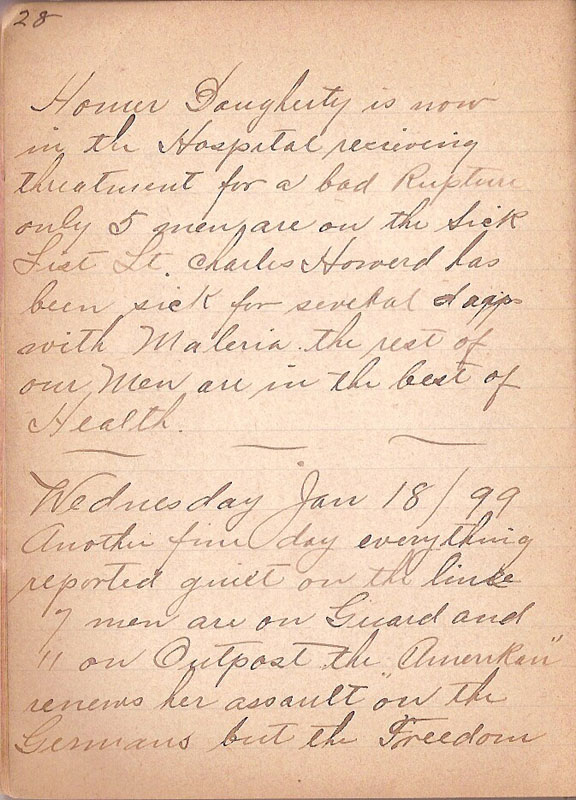 28
Homer Daugherty is now
in the Hospital recieving
threatment for a bad Rupture
only 5 men are on the Sick
List Lt. Charles Howerd has
been sick for several days
with Maleria. the rest of
our Men are in the best of
Health.
Wednesday Jan 18/99
Another fine day everything
reported quiet on the line
7 men are on Guard and
11 on Outpost the "American"
renews her assault on the
Germans but the Freedom